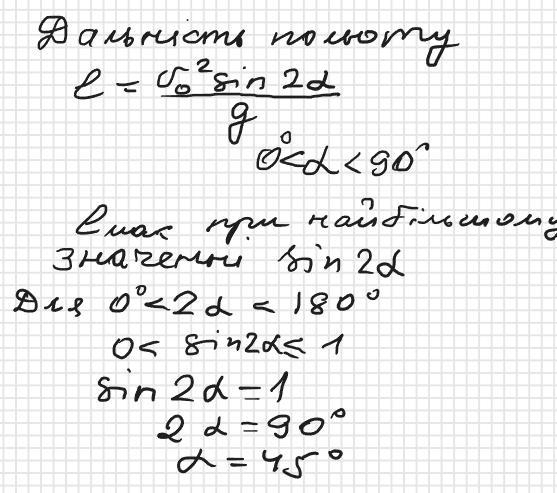 Дальність польоту
l = v₀² sin 2α / g
0° < α < 90°
l мак при найбільшому
значенні sin 2α
Для 0° < 2α < 180°
0 < sin2α ≤ 1
sin 2α = 1
2 α = 90°
α = 45°